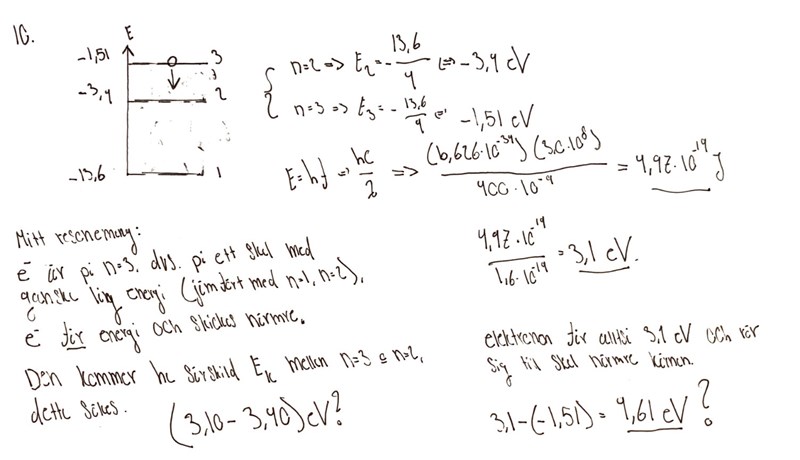 10.
E
-1,51 3
-3,4 2
-13,6 1
n=2 => E₂=-13,6/4 <=> -3,4 eV
n=3 => E₃=-13,6/9 <=> -1,51 eV
E=hf => hc/λ => (6,626·10⁻³⁴)(3.0·10⁸)/400·10⁻⁹ = 4,97·10⁻¹⁹ J
4,97·10⁻¹⁹/1,6·10⁻¹⁹ = 3,1 eV.
Mitt resonemang:
e⁻ är på n=3. dvs. på ett skal med
ganska låg energi (jämfört med n=1, n=2).
e⁻ får energi och skickas närmre.
Den kommer ha särskild Eₖ mellan n=3 & n=2,
detta sökes.
(3,10-3,40)eV?
elektronen får alltså 3.1 eV och rör
sig till skal närmre kärnan.
3,1-(-1,51) = 4,61 eV?